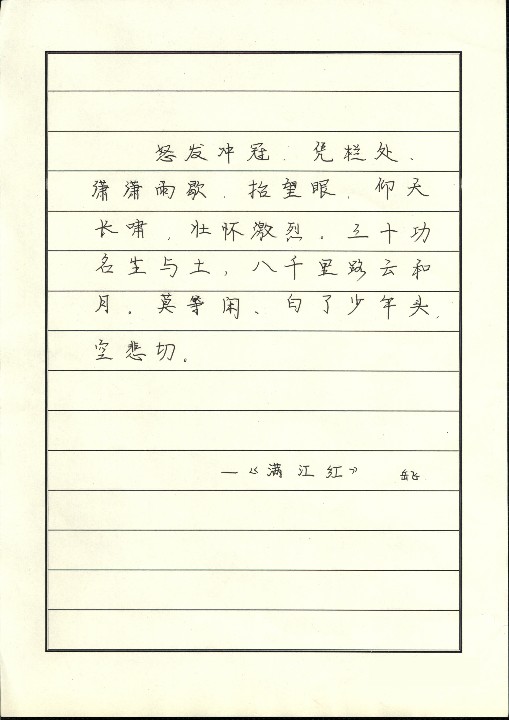 怒发冲冠、凭栏处、
潇潇雨歇、抬望眼、仰天
长啸，壮怀激烈。三十功
名生与土，八千里路云和
月。莫等闲、白了少年头，
空悲切。
—《满江红》 岳飞